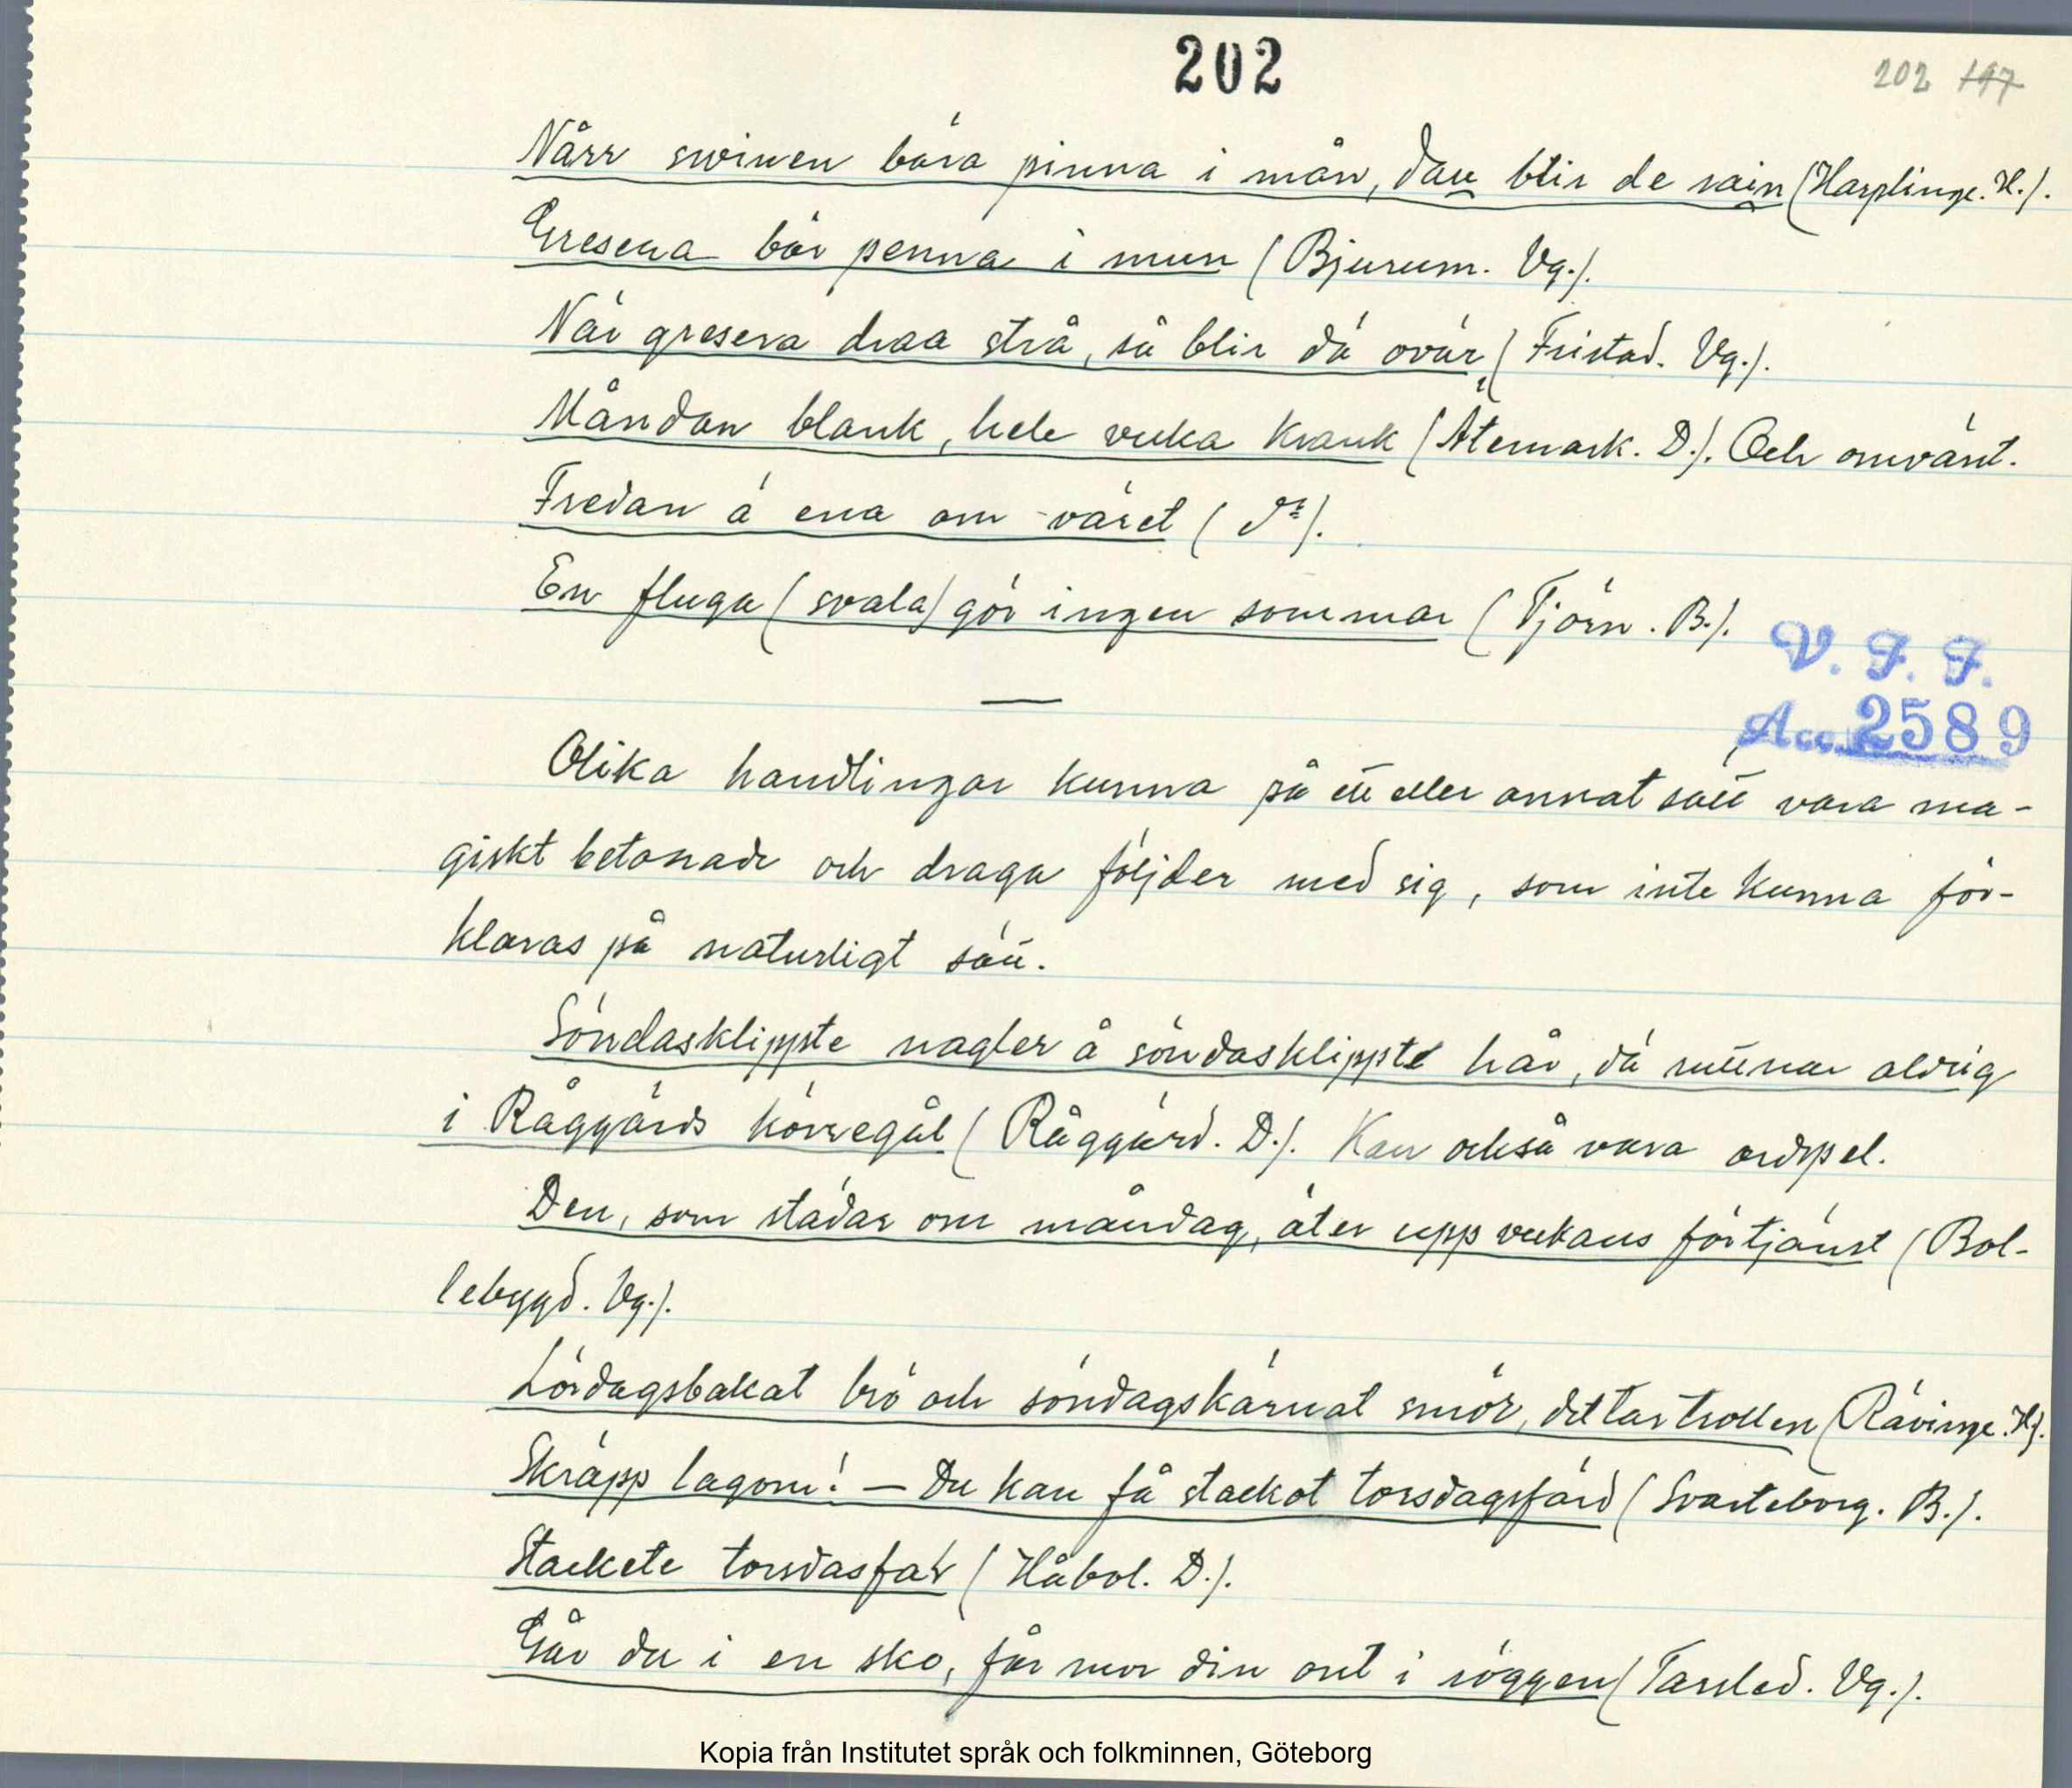 202
202 197
Nårr svinen bära pinna i mån, dau blir de rain (Harplinge. H.).
Gresena bär penna i mun (Bjurum. Vg.).
När gresera draa strå, så blir dä ovär (Fristad. Vg.).
Måndan blank, hele veka krank (Ätemark. D.). Och omvänt.
Fredan ä ena om väret (do).
En fluga (svala) gör ingen sommar (Tjörn. B.).
V. F. F.
Acc. 2589
Olika handlingar kunna på ett eller annat sätt vara ma-
giskt betonade och draga följder med sig, som inte kunna för-
klaras på naturligt sätt.
Söndasklippte nagler å söndasklippte hår, dä ruttnar aldrig
i Råggärds körregål (Råggärd. D.). Kan också vara ordspel.
Den, som städar om måndag, äter upp vekans förtjänst (Bol-
lebygd. Vg.).
Lördagsbakat brö och söndagskärnat smör, det tar trollen (Rävinge. H).
Skräpp lagom! – Du kan få stackot torsdagsfärd (Svarteborg. B.).
Stackete torsdasfar (Håbol. D.).
Går du i en sko, får mor din ont i röggen (Tarsled. Vg.).
Kopia från Institutet språk och folkminnen, Göteborg